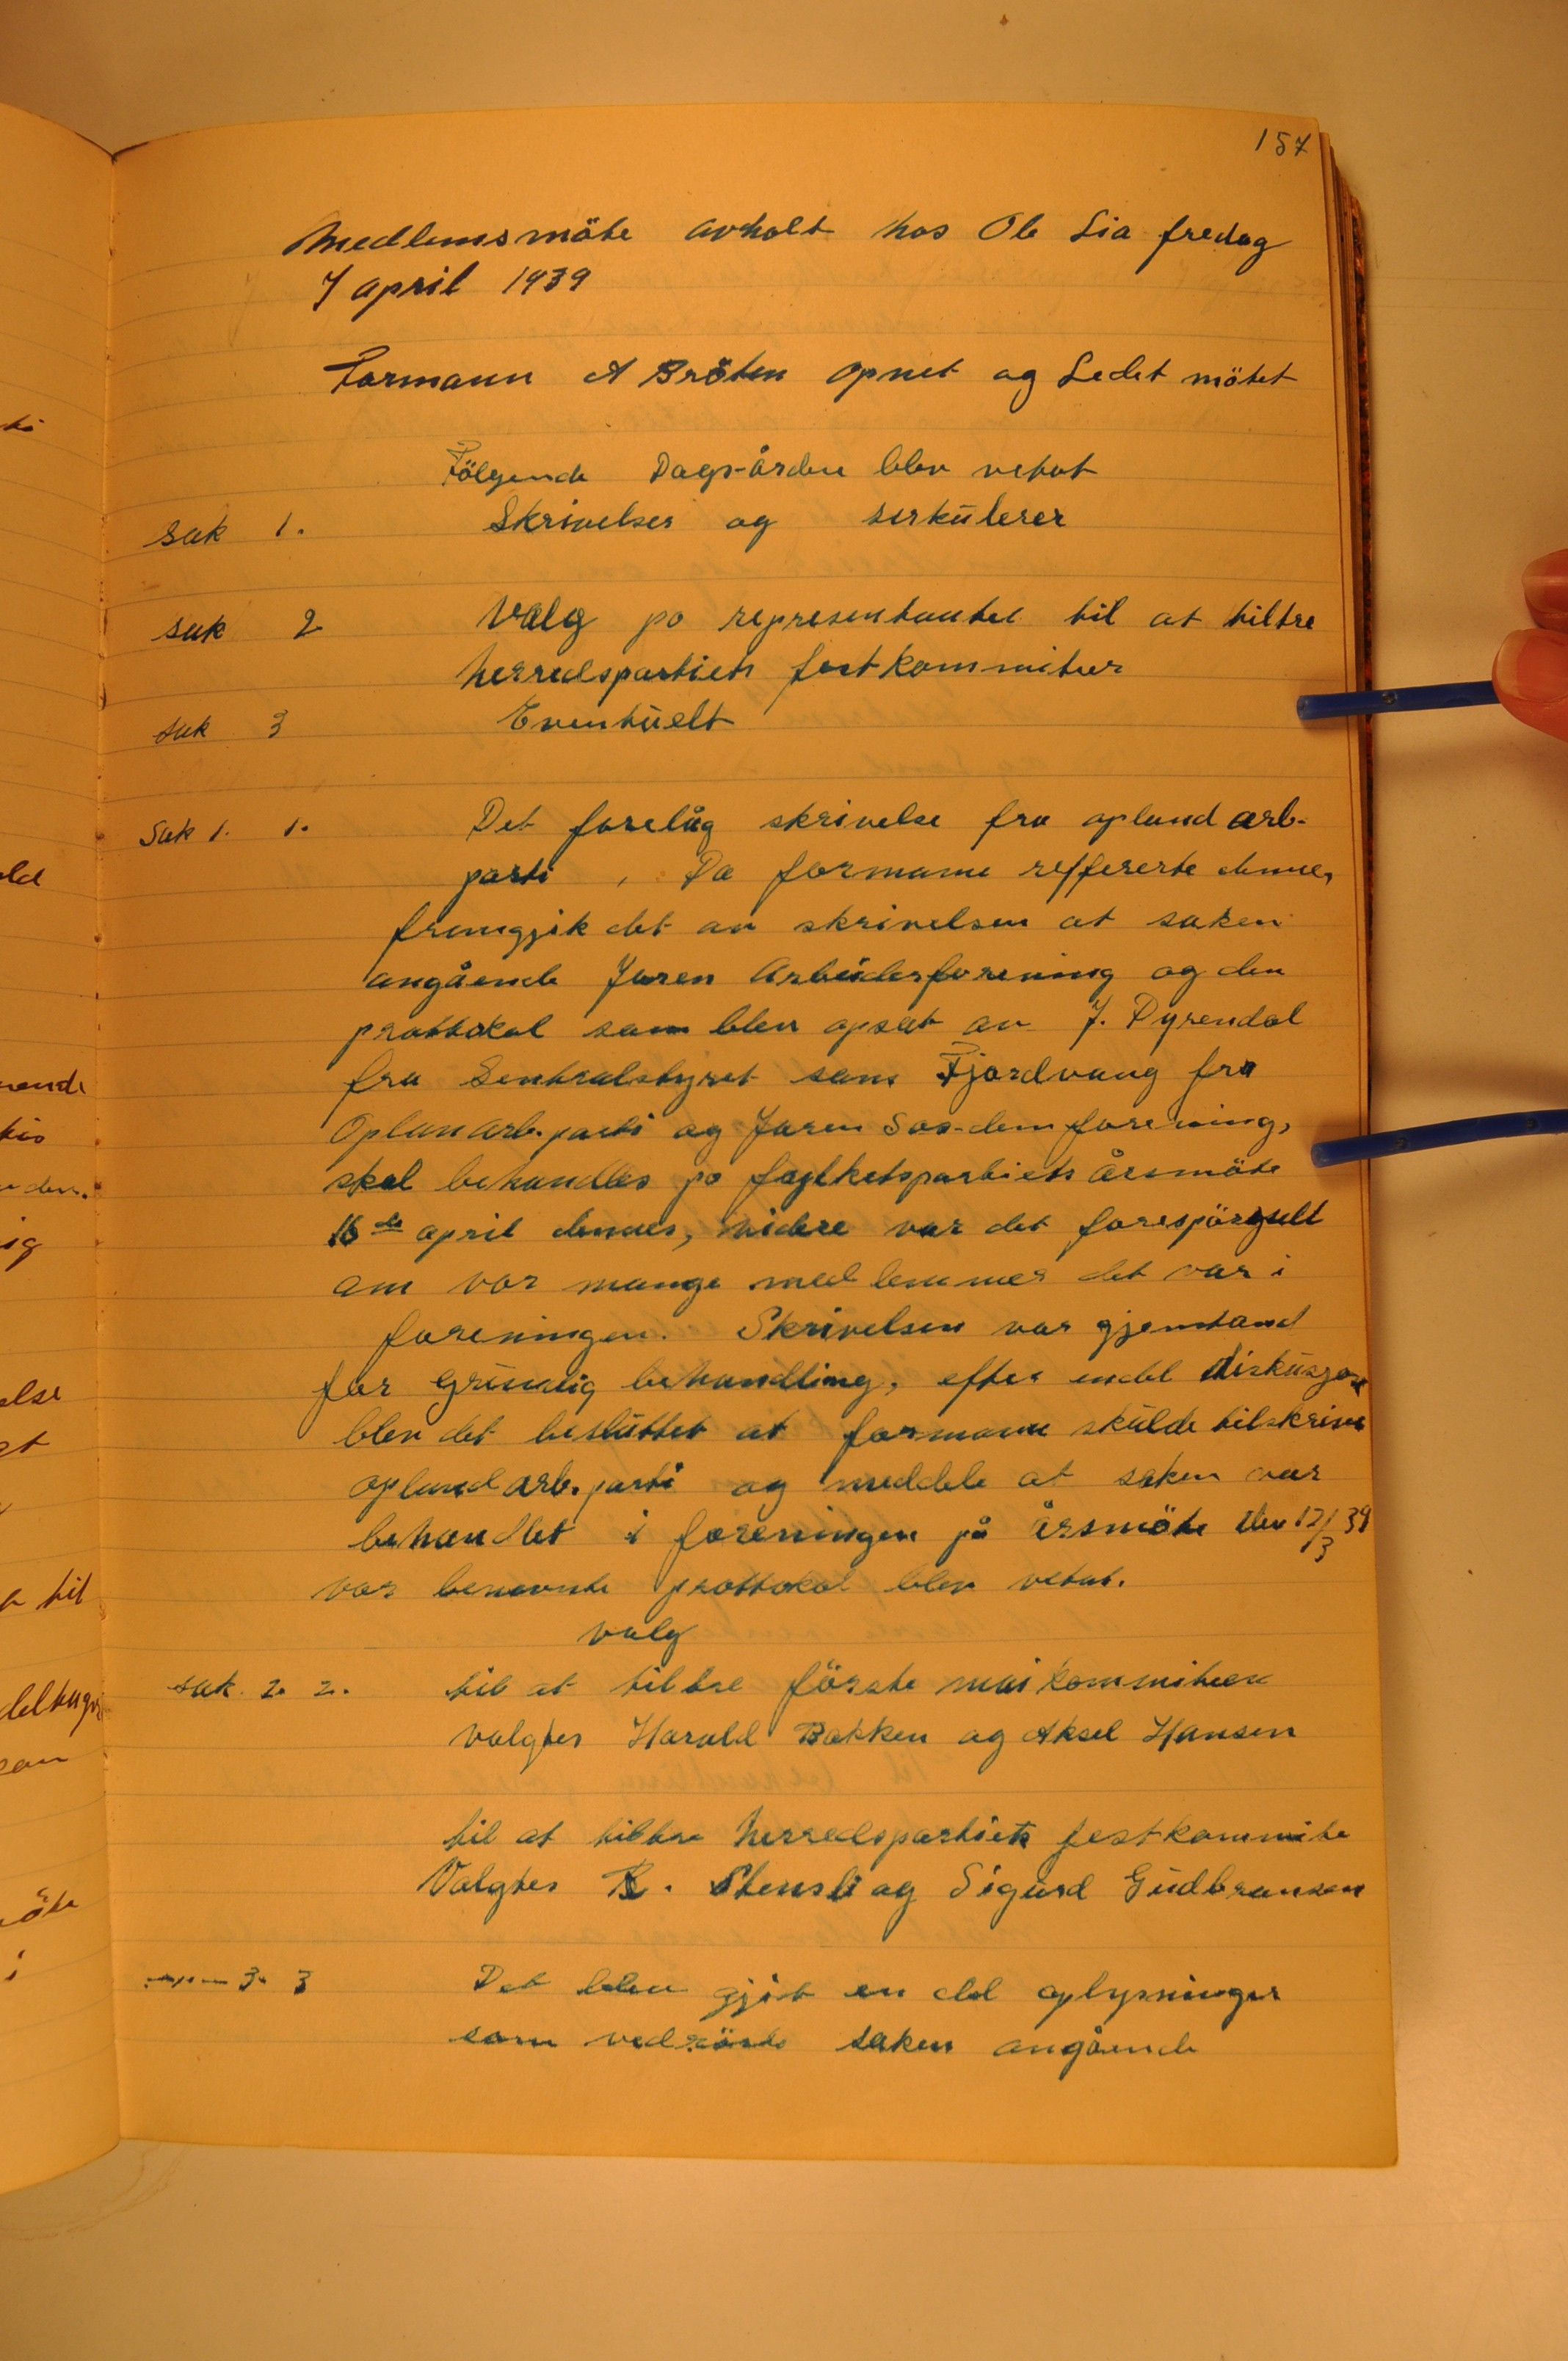 157
Medlemsmöte avholt hos Ole Lia fredag
7 april 1939
Formann A Bröten opnet og Ledet mötet
Fölgende Dags-ården blev vetat
sak 1. Skrivelser og serkulerer
sak 2 Valg po representanter til at tiltre
herredspartiets festkommiteer
sak 3 Eventuelt
Sak 1. 1. Det forelåg skrivelse fra opland arb-
parti, Da formann reffererte denne,
fremgjik det av skrivelsen at saken
angående Jaren Arbeiderforening og den
prottokol som blev opsat av J. Dyrendal
fra Sentralstyret sams Fjordvang fra
Oplan arb. parti og Jaren Sos-dem forening,
skal behandles po fylketspartiets årsmöte
16de april dennes, videre var det forespörgsell
om vor mange medlemmer det var i
foreningen. Skrivelsen var gjenstand
for grundig behandling, efter endel diskusjon
blev det besluttet at formann skulde tilskrive
opland arb. parti og meddele at saken var
behandlet i foreningen på årsmöte den 12/3 39
vor benevnte prottokol blev vetat.
valg
sak 2. 2. til at tiltre förste mai kommiteen
valgtes Harald Bakken og Aksel Hansen
til at tiltre herredspartiets festkommite
Valgtes K. Stensli og Sigurd Gudbransen
3. 3 Det blev gjit en del oplysninger
som vedrörte saken angående